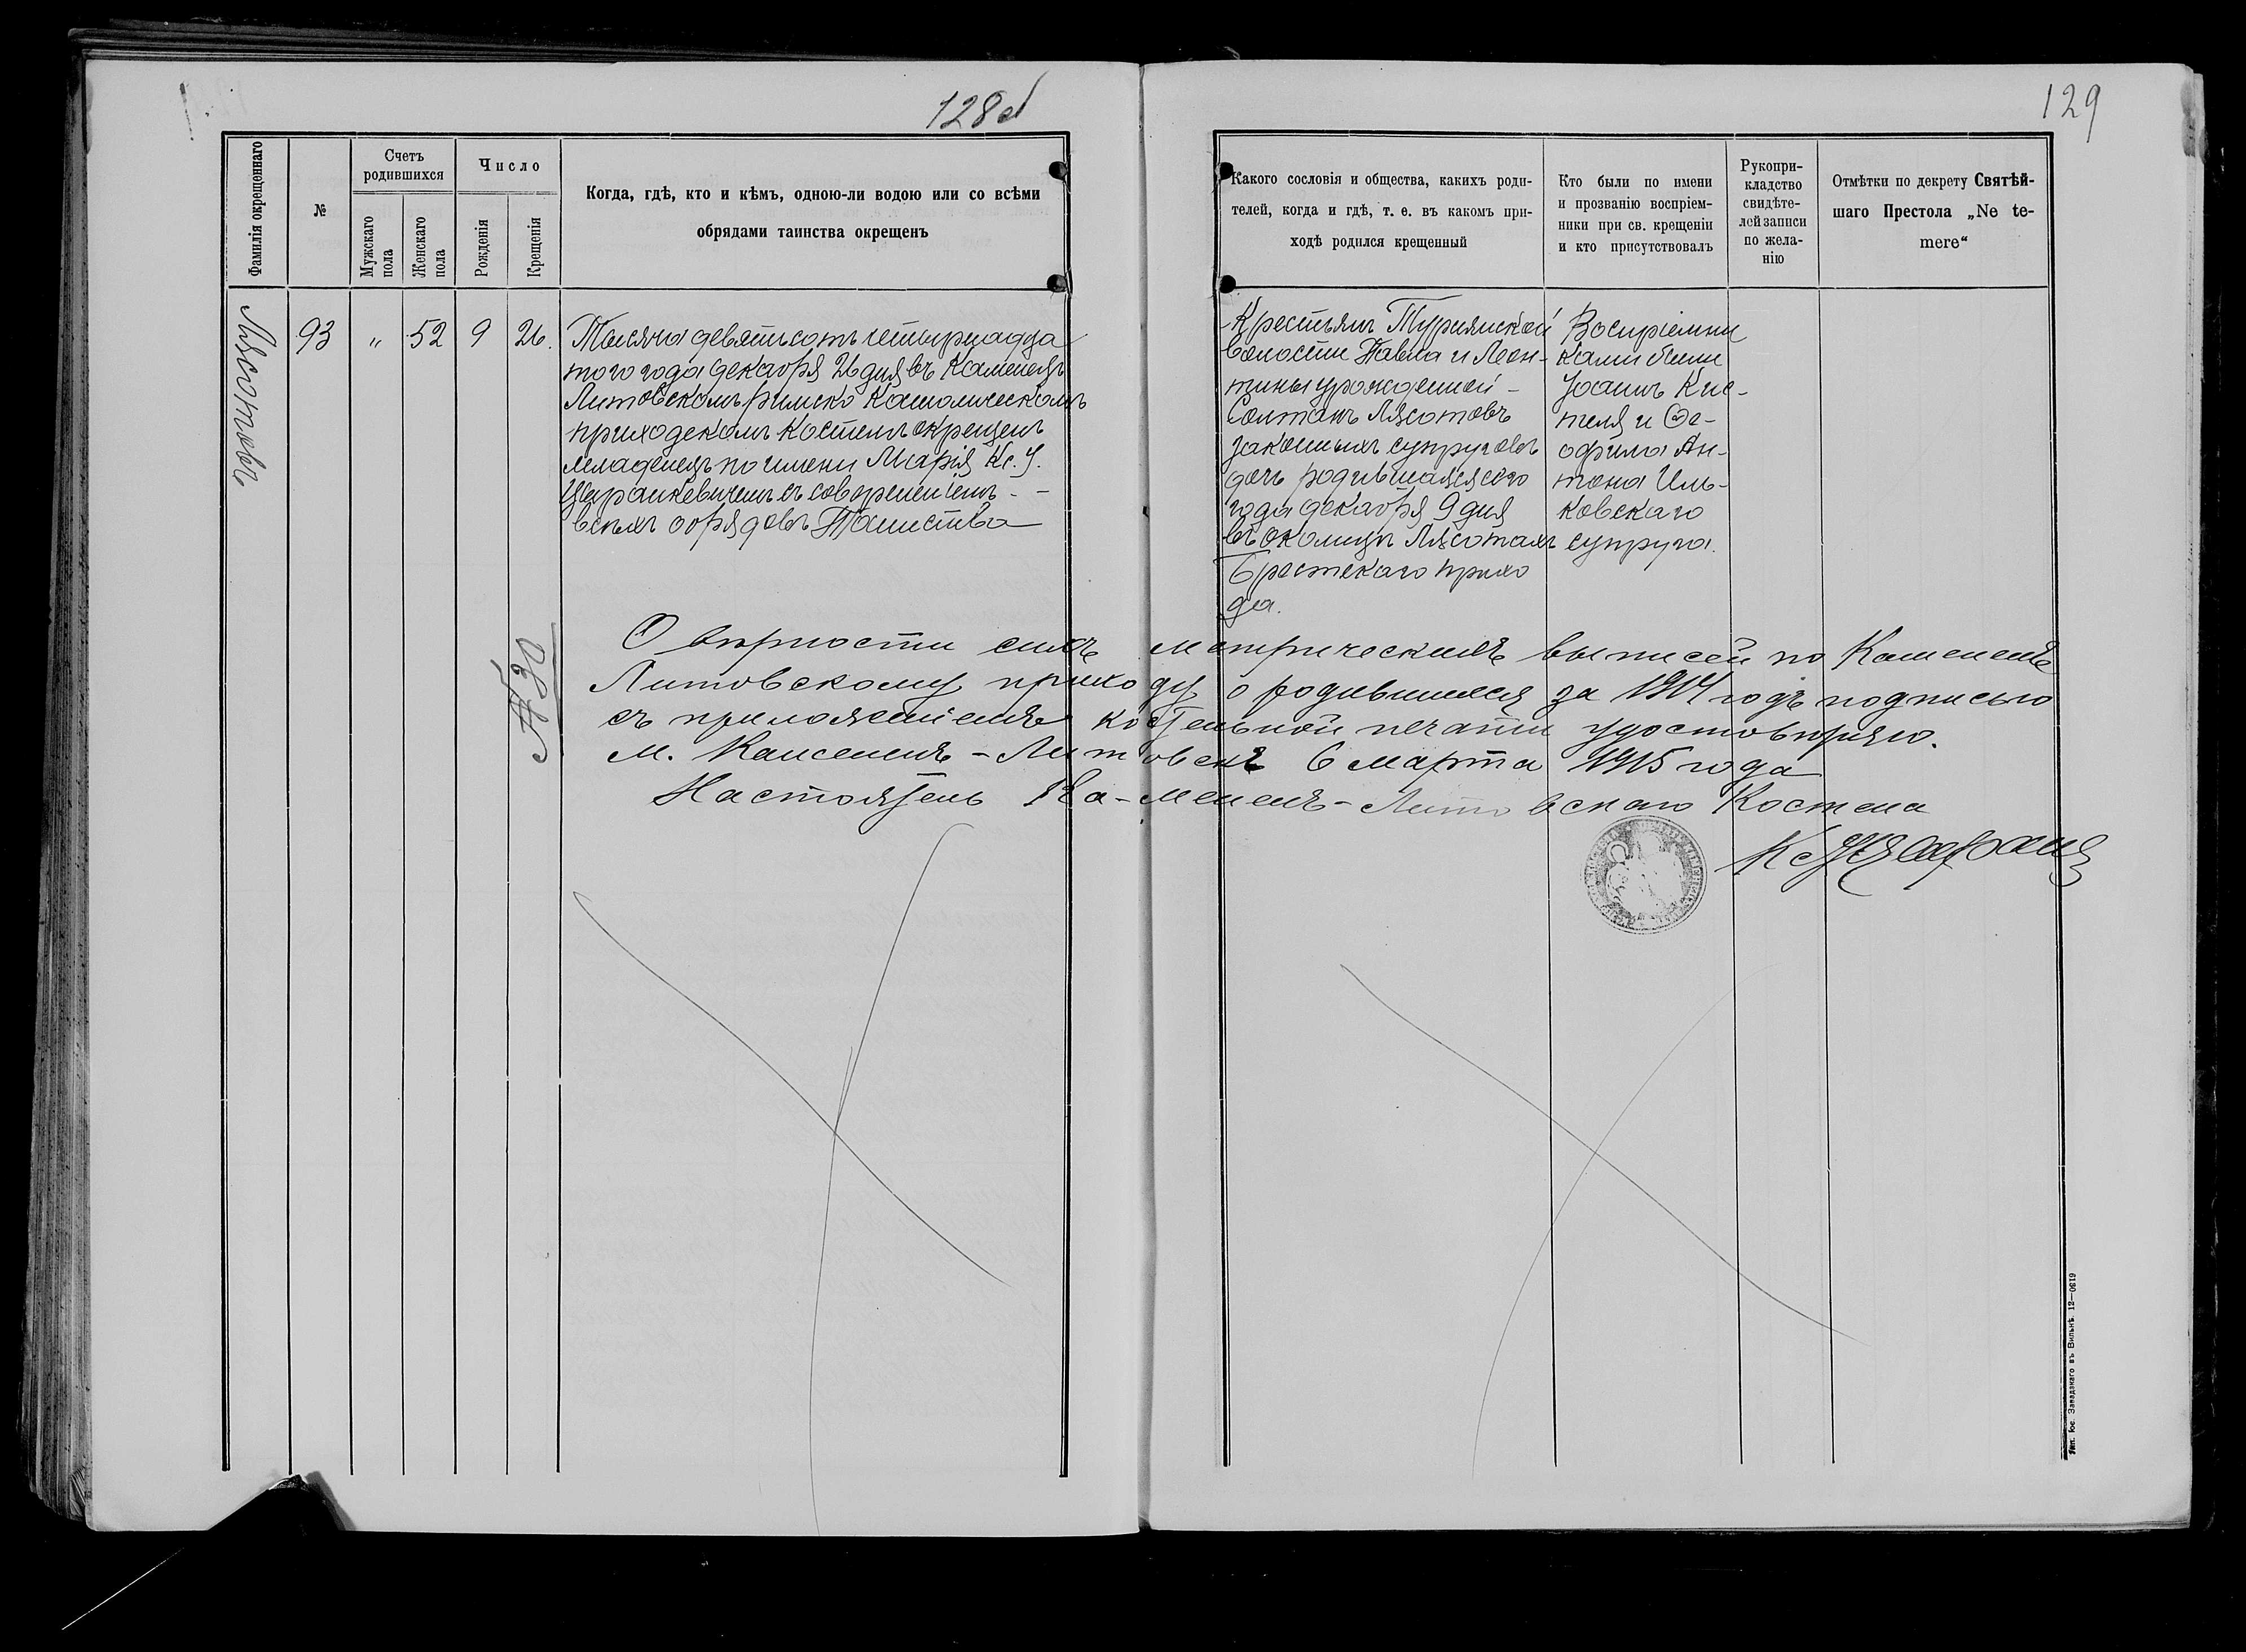 128об
129
Фамилія окрещеннаго
№
Счетъ
родившихся
Мужскаго
пола
Женскаго
пола
Число
Рожденія
Крещенія
Когда, гдѣ, кто и кѣмъ, одною-ли водою или со всѣми
обрядами таинства окрещенъ
Какого сословія и общества, какихъ роди-
телей, когда и гдѣ, т. е. въ какомъ при-
ходѣ родился крещенный
Кто были по имени
и прозванію воспріем-
ники при св. крещеніи
и кто присутствовалъ
Рукопри-
кладство
свидѣте-
лей записи
по жела-
нію
Отмѣтки по декрету Святѣй-
шаго Престола „Ne te-
mere“
Лясотовъ
93
„
52
9
26.
Тысяча девятьсотъ четырнадца
того года декабря 26 дня въ Каменецъ
Литовскомъ римско Католическомъ
приходскомъ костелѣ окрещенъ
младенецъ по имени Марія Кс. У.
съ совершеніемъ -
всѣхъ обрядовъ Таинства
Крестьянъ Турнянской
волости Павла и Леон-
тины урожденной -
Солтанъ Лясотовъ
законныхъ супруговъ
дочь родившаяся сего
года декабря 9 дня
въ околицѣ Лясотахъ
Брестскаго прихо
да.
Воспріемни
ками были
Іоаннъ Кис-
теля и Ѳе-
офила Ан-
тона Иль-
ковскаго
супруга.
№ 30
О вѣрности сихъ метрическихъ выписей по Каменецъ
Литовскому приходу о родившихся за 1914 годъ подписью
съ приложеніемъ костельной печати удостовѣряю.
м. Каменецъ-Литовскъ 6 марта 1915 года
Настоятель Ка-менецъ-Литовскаго Костела
Тип. Іос. Завадзкаго въ Вильнѣ. 12—0619